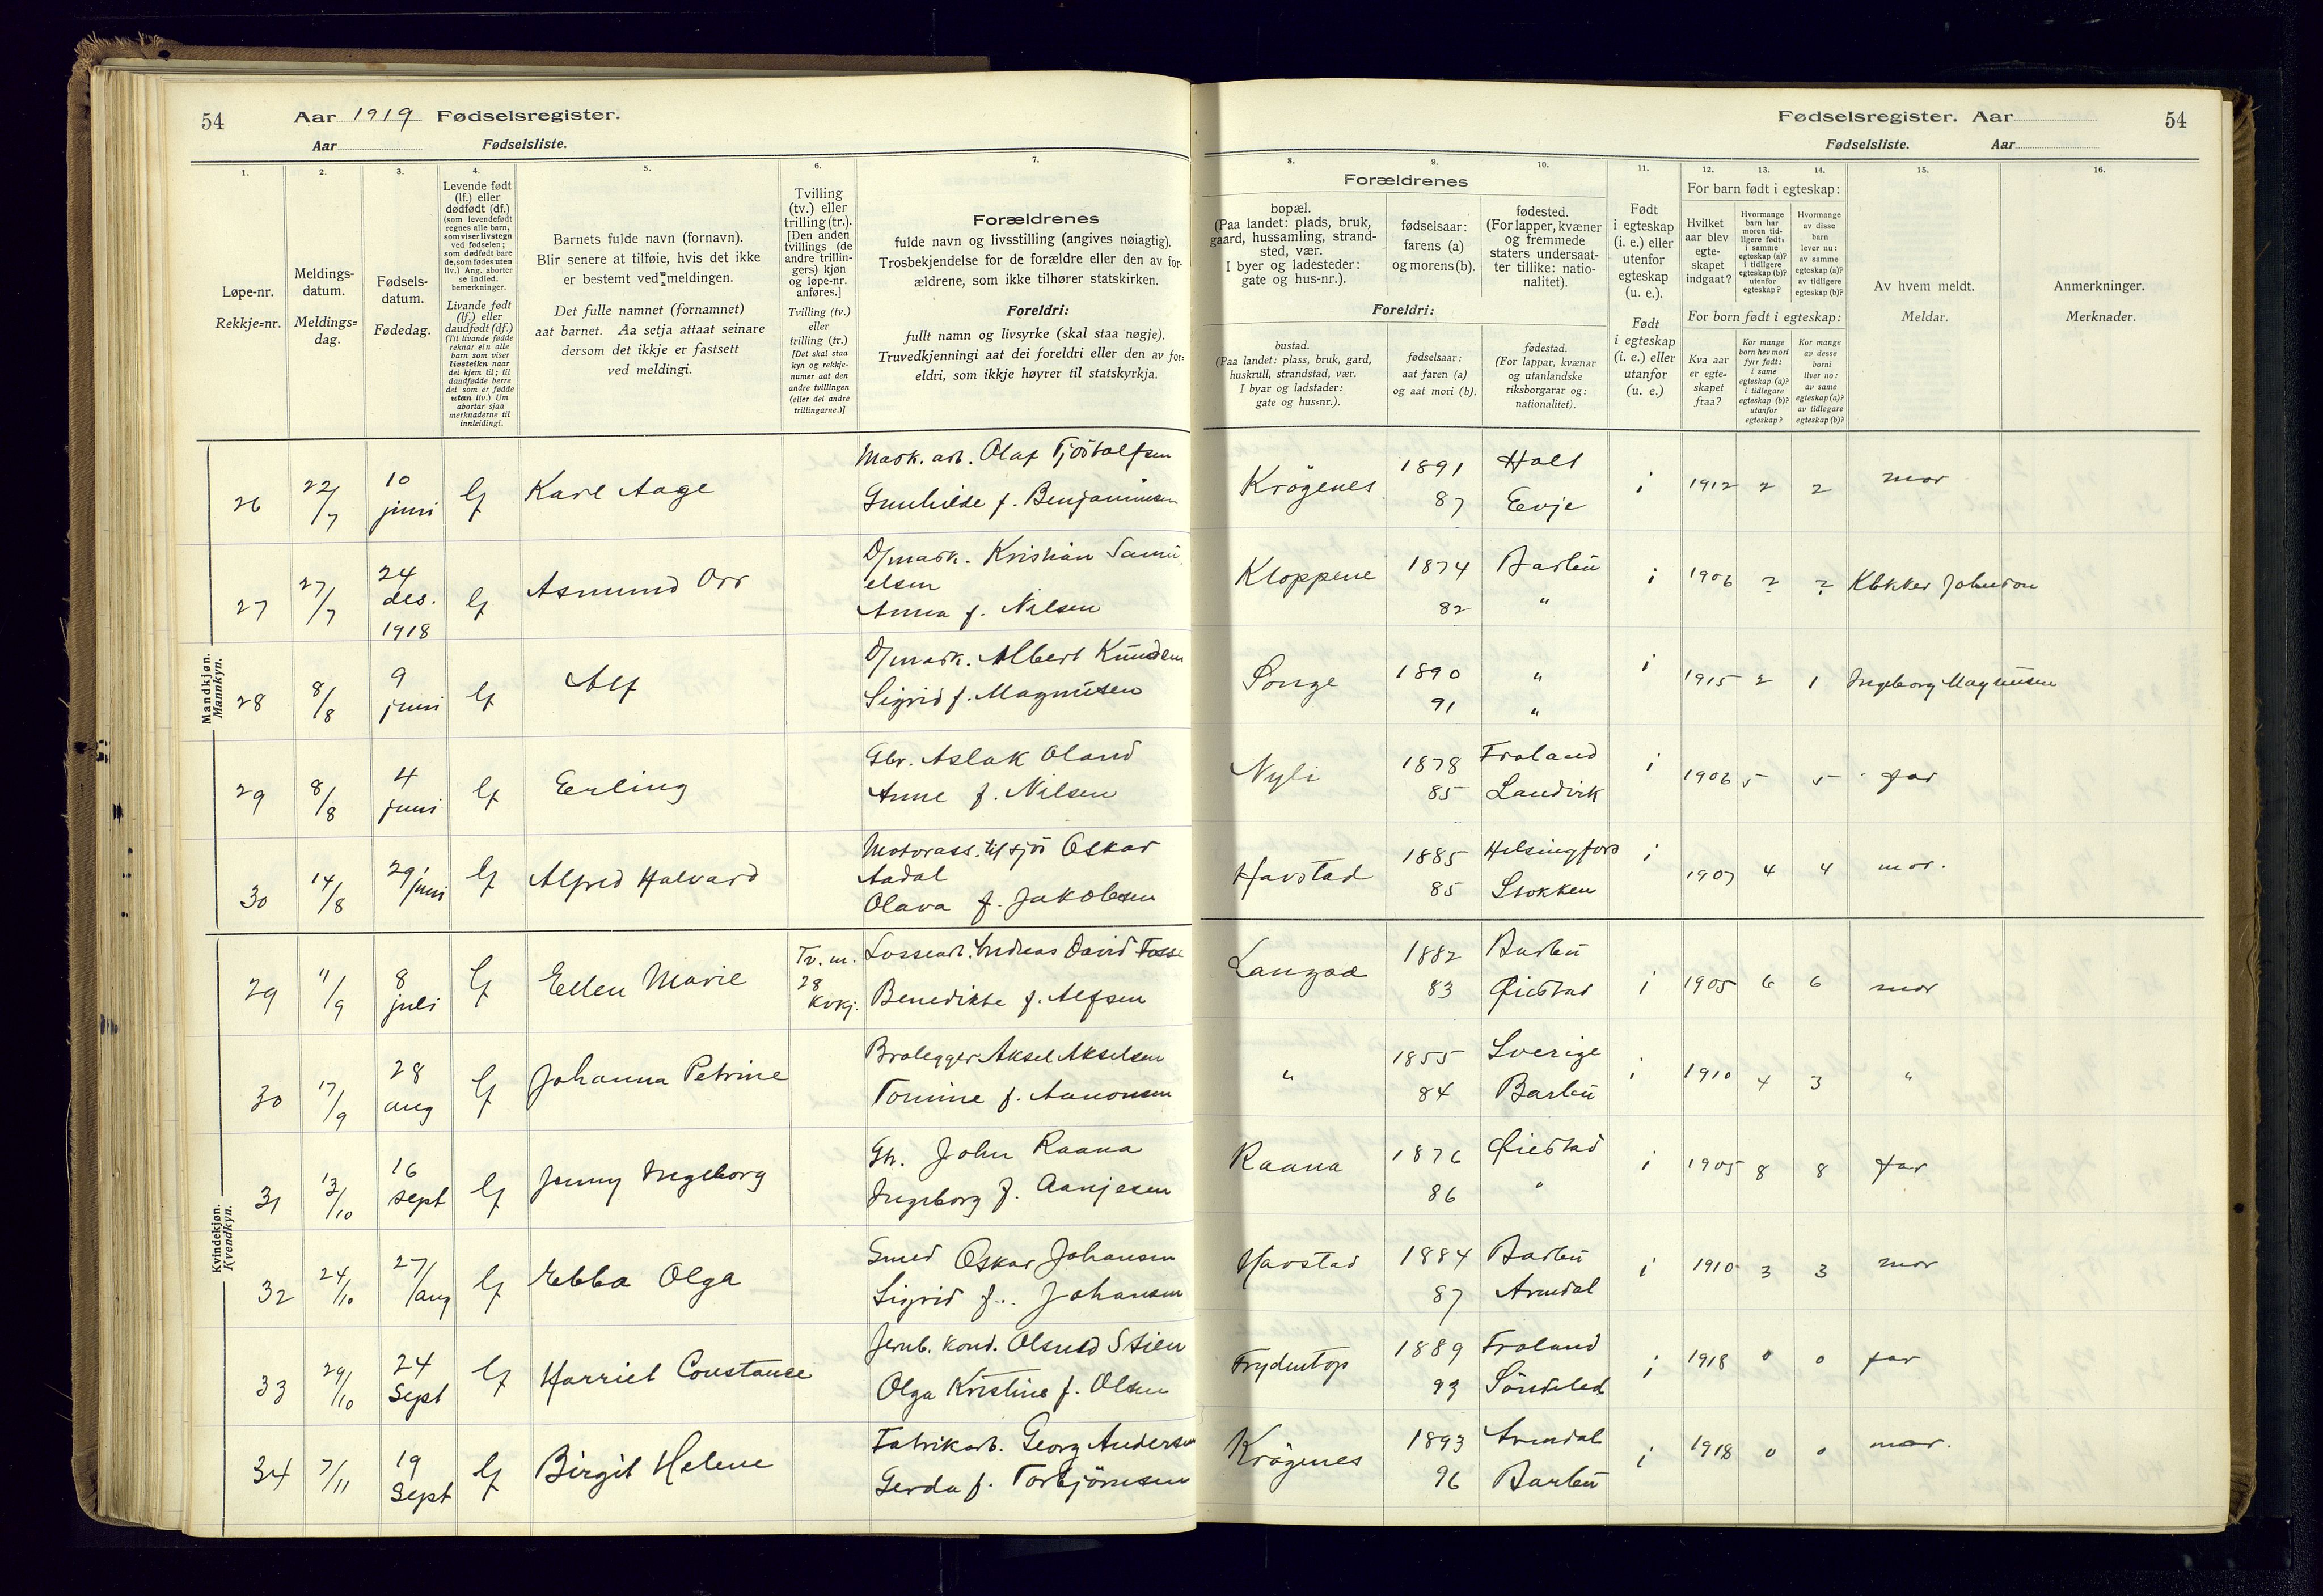 54 Aar 1919 Fødselsregister.
Aar Fødselsliste.
Fødselsregister. Aar 54
Fødselsliste. Aar
1. 2. 3. 4. 5. 6. 7.
Løpe-nr.
Rekkje=nr.
Meldings-
datum.
Meldings=
dag.
Fødsels-
datum.
Fødedag.
Levende født
(lf.) eller
dødfødt (df.)
(som levendefødt
regnes alle barn,
som viser livstegn
ved fødselen;
som dødfødt bare
de, som fødes uten
liv.) Ang. aborter
se indled.
bemerkninger.
Livande født
(lf.) eller
daudfødt (df.)
(Til livande fødde
reknar ein alle
barn som viser
livsteikn naar
dei kjem til; til
daudfødde berre
dei som er fødde
utan liv.) Um
abortar sjaa
merknaderne til
innleidingi.
Barnets fulde navn (fornavn).
Blir senere at tilføie, hvis det ikke
er bestemt ved meldingen.
Det fulle namnet (fornamnet)
aat barnet. Aa setja attaat seinare
dersom det ikkje er fastsett
ved meldingi.
Tvilling
(tv.) eller
trilling (tr.).
[Den anden
tvillings (de
andre trillin-
gers) kjøn
og løpe-nr.
anføres.]
Tvilling (tv.)
eller
trilling (tr.)
[Det skal staa
kyn og rekkje-
numer aat den
andre tvillingen
(eller dei andre
trillingarne.)]
Forældrenes
fulde navn og livsstilling (angives nøiagtig).
Trosbekjendelse for de forældre eller den av for-
ældrene, som ikke tilhører statskirken.
Foreldri:
fullt namn og livsyrke (skal staa nøgje).
Truvedkjenningi aat dei foreldri eller den av for=
eldri, som ikkje høyrer til statskyrkja.
8. 9. 10. 11. 12. 13. 14. 15. 16.
Forældrenes
bopæl.
(Paa landet: plads, bruk,
gaard, hussamling, strand-
sted, vær.
I byer og ladesteder:
gate og hus-nr.).
fødselsaar:
farens (a)
og morens (b).
fødested.
(For lapper, kvæner
og fremmede
staters undersaat-
ter tillike: natio-
nalitet).
Foreldri:
bustad.
(Paa landet: plass, bruk, gard,
huskrull, strandstad, vær.
I byar og ladstader:
gate og hus=nr.).
fødselsaar:
aat faren (a)
og aat mori (b).
fødestad.
(For lappar, kvænar
og utanlandske
riksborgarar og:
nationalitet).
Født
i egteskap
(i. e.) eller
utenfor
egteskap
(u. e.).
Født
i egteskap
(i. e.) eller
utanfor
(u. e.)
For barn født i egteskap:
Hvilket
aar blev
egte-
skapet
indgaat?
Hvormange
barn har
moren tid-
ligere født:
i samme
egteskap (a)?
i tidligere
egteskap (b)?
utenfor
egteskap?
Hvormange
av disse
barn
lever nu:
av samme
egteskap (a)?
av tidligere
egteskap (b)?
For born født i egteskap:
Kva aar
er egte=
skapet
fraa?
Kor mange
born hev mori
fyrr født:
i same
egteskap (a)?
i tidlegare
egteskap (b)?
utanfor
egteskap?
Kor mange
av desse
borni
liver no:
av same
egteskap (a)?
av tidlegare
egteskap (b)?
Av hvem meldt.
Meldar.
Anmerkninger.
Merknader.
Mandkjøn.
Mannkyn.
26 22/7 10 juni lf Karl Aage Mask. arb. Olaf Tjöstolfsen Krögenes 1891 Holt i 1912 2 2 mor
Gunhilde f. Benjaminsen 87 Evje
27 27/7 24 des. 1918 lf Asmund Orr D/mask. Kristian Samu
elsen Kloppene 1874 Barbu i 1906 ? ? Klokker Johnson
Anna f. Nilsen 82 "
28 8/8 9 juni lf Alf D/mask. Albert Knudsen Songe 1890 " i 1915 2 1 Ingeborg Magnusen
Sigrid f. Magnusen 91 "
29 8/8 4 juni lf Erling Gbr. Aslak Oland Nyli 1878 Froland i 1906 5 5 far
Anne f. Nilsen 85 Landvik
30 14/8 29/juni lf Alfred Halvard Motorass. til sjös Oskar
Aadal Havstad 1885 Helsingfors i 1907 4 4 mor.
Olava f. Jakobsen 85 Stokken
Kvindekjøn.
Kvendkyn.
29 11/9 8 juli lf Ellen Marie Tv. m. 28 kvkj. Lossearb. Andreas David Fosse Langsæ 1882 Barbu i 1905 6 6 mor
Benedikte f. Alfsen 83 Øiestad
30 17/9 28 aug lf Johanna Petrine Brolegger Aksel Akselsen " 1855 Sverige i 1910 4 3 "
Tomine f. Aanonsen 84 Barbu
31 13/10 16 sept lf Jenny Ingeborg Gbr. John Raana Raana 1876 Øiestad i 1905 8 8 far
Ingeborg f. Aanjesen 86 "
32 24/10 27/aug lf Ebba Olga Smed Oskar Johansen Havstad 1884 Barbu i 1910 3 3 mor
Sigrid f. Johansen 87 Arendal
33 29/10 24 Sept lf Harriet Constance Jernb. kond. Stien Frydentop 1889 Froland i 1918 0 0 far
Olga Kristine f. Olsen 93 Söndeled
34 7/11 19 Sept lf Birgit Helene Fabrikarb. Georg Andersen Krögenes 1893 Arendal i 1918 0 0 mor.
Gerda f. Torbjörnsen 96 Barbu